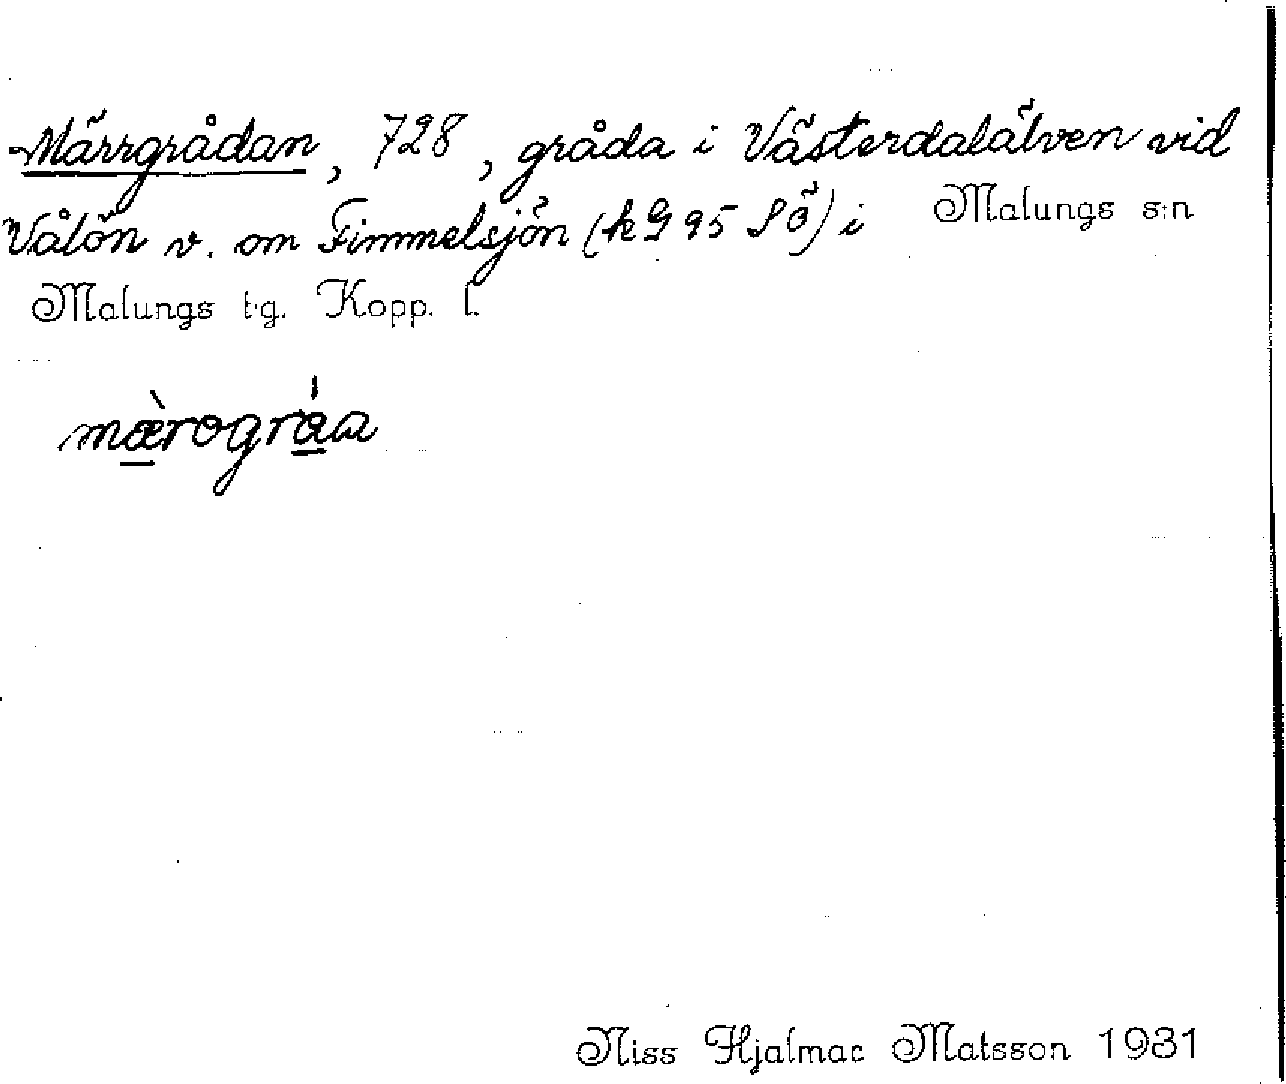 Märrgrådan, 728, gråda i Västerdalälven vid
Vålön v. om Fimmelsjön (kG 95 SÖ) i Malungs s:n
Malungs t·g. Kopp. l.
mæ̀rogråa
Niss Hjalmar Matsson 1981